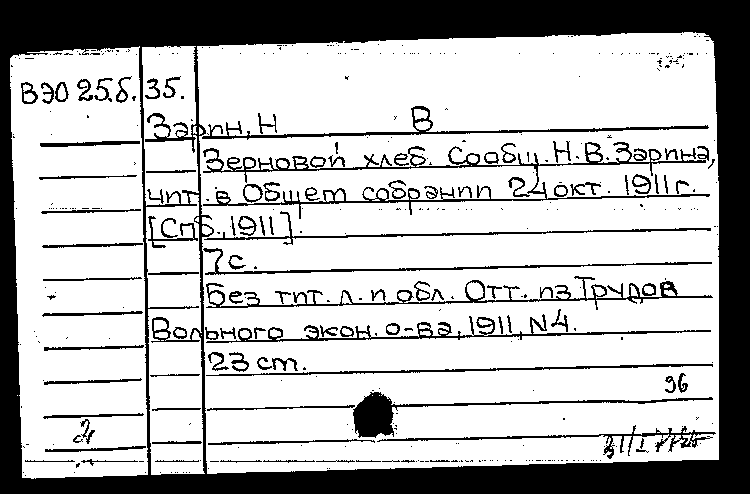 ВЭО 25.б. 35.
Зарин, Н В
Зерновой хлеб. Сообщ. Н.В. Зарина,
чит. в Общем собрании 24 окт. 1911 г.
[Спб., 1911].
7 с.
Без тит. л. и обл. Отт. из Трудов
Вольного экон. о-ва, 1911, N4.
23 ст.
96